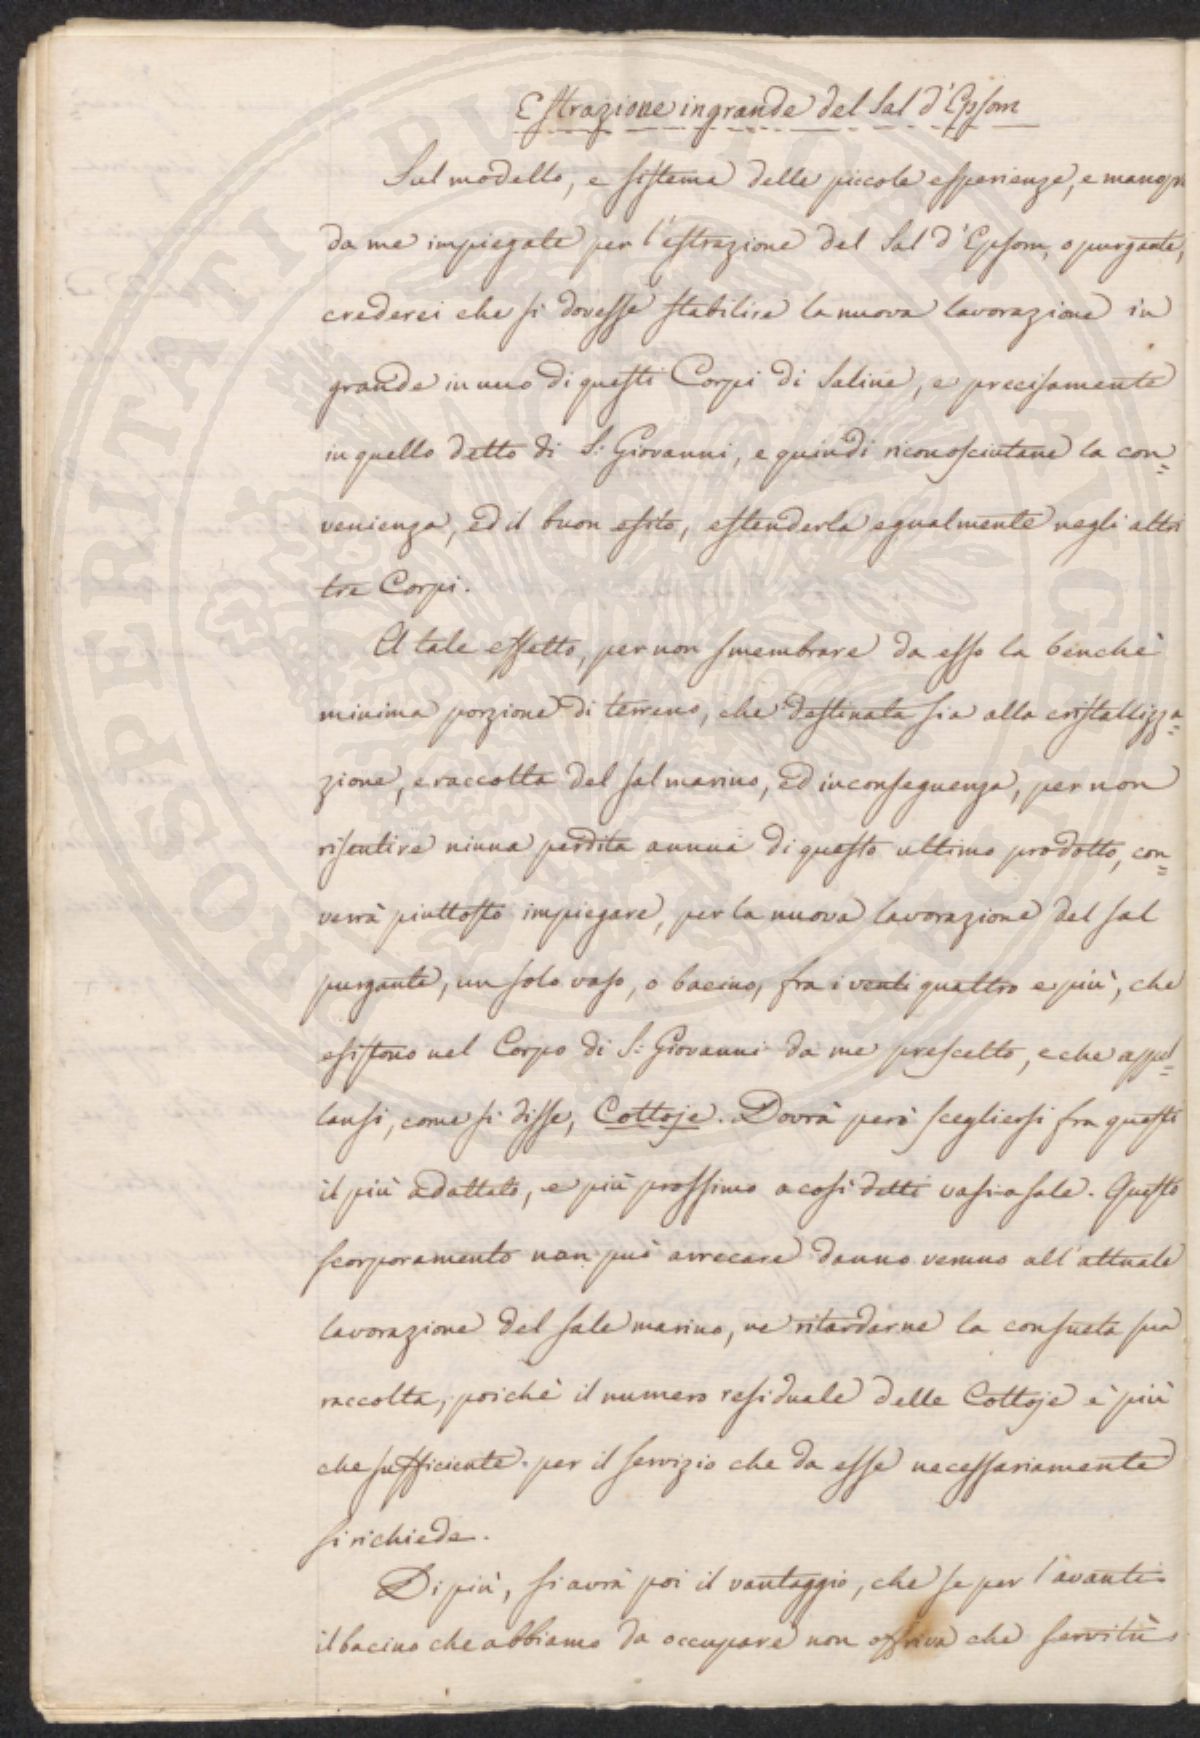 Estrazione in grande del Sal d'Epsom
Sul modello, e sistema delle piccole esperienze, e manop
da me impiegate per l'estrazione del Sal d'Epsom, o purgante,
crederei che si dovesse stabilire la nuova lavorazione in
grande in uno di questi Corpi di Saline, e precisamente
in quello detto di S: Giovanni, e quindi riconosciutane la con=
venienza, ed il buon esito, estenderla egualmente negli altri
tre Corpi.
A tale effetto, per non smembrare da esso la benchè
minima porzione di terreno, che destinata sia alla cristallizza=
zione, e raccolta del sal marino, ed in conseguenza, per non
risentire niuna perdita annua di questo ultimo prodotto, con=
verrà piuttosto impiegare, per la nuova lavorazione del sal
purgante, un solo vaso, o bacino, fra i venti quattro e più, che
esistono nel Corpo di S: Giovanni da me prescelto, e che appel=
lansi, come si disse, Cottoje. Dovrà però scegliersi fra questi
il più adattato, e più prossimo a così detti vasi-a sale. Questo
scorporamento non può arrecare danno veruno all'attuale
lavorazione del sale marino, ne ritardarne la consueta sua
raccolta, poichè il numero residuale delle Cottoje è più
che sufficiente per il servizio che da esse necessariamente
si richiede.
Di più, si avrà poi il vantaggio, che se per l'avanti
il bacino che abbiamo da occupare non offriva che servitù
PROSPERITATI PVBLICAE AVGENDAE